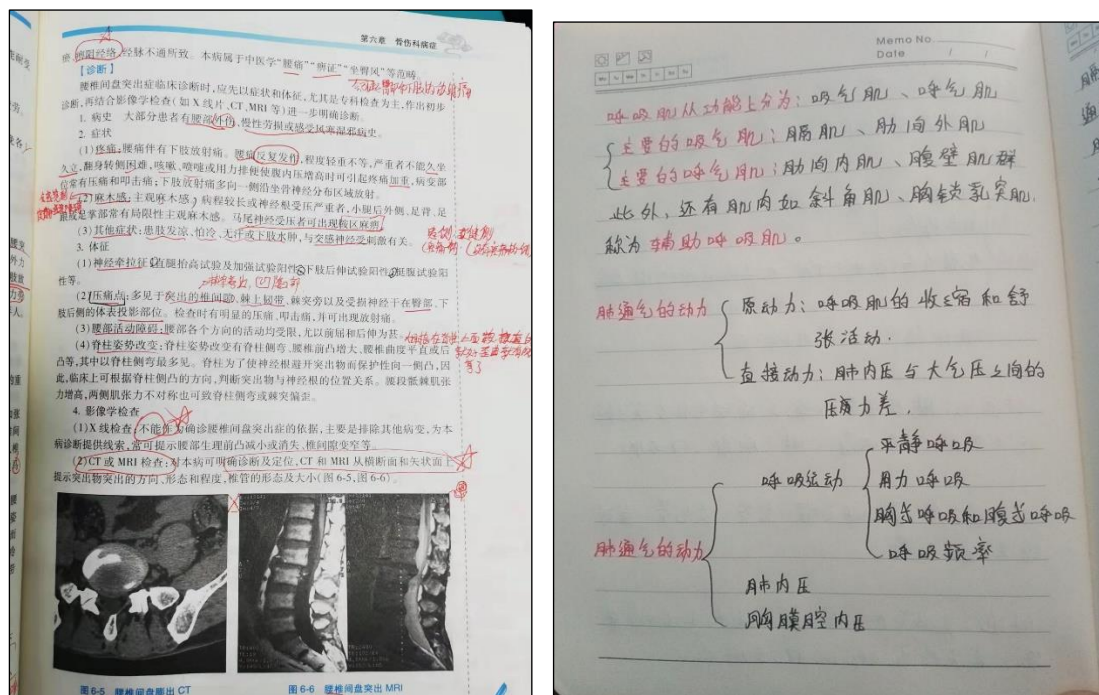 第六章 骨伤科病症
瘀阻经络,经脉不通所致。本病属于中医学“腰痛”“痹证”“坐臀风”等范畴。
【诊断】
腰椎间盘突出症临床诊断时,应先以症状和体征,尤其是专科检查为主,作出初步
诊断,再结合影像学检查(如X线片、CT、MRI等)进一步明确诊断。
1. 病史 大部分患者有腰部外伤、慢性劳损或感受风寒湿邪病史。
2. 症状
(1)疼痛:腰痛伴有下肢放射痛。腰痛反复发作,程度轻重不等,严重者不能久坐
久立,翻身转侧困难,咳嗽、喷嚏或用力排便使腹内压增高时可引起疼痛加重,病变部
位常有压痛和叩击痛;下肢放射痛多向一侧沿坐骨神经分布区域放射。
(2)麻木感:主观麻木感。病程较长或神经根受压严重者,小腿后外侧、足背、足
跟或足掌部常有局限性主观麻木感。马尾神经受压者可出现鞍区麻痹。
(3)其他症状:患肢发凉、怕冷、无汗或下肢水肿,与交感神经受刺激有关。
3. 体征
(1)神经牵拉征:直腿抬高试验及加强试验阳性;下肢后伸试验阳性;挺腹试验阳
性等。
(2)压痛点:多见于突出的椎间隙、棘上韧带、棘突旁以及受损神经干在臀部、下
肢后侧的体表投影部位。检查时有明显的压痛、叩击痛,并可出现放射痛。
(3)腰部活动障碍:腰部各个方向的活动均受限,尤以前屈和后伸为甚。
(4)脊柱姿势改变:脊柱姿势改变有脊柱侧弯、腰椎前凸增大、腰椎曲度平直或后
凸等,其中以脊柱侧弯最多见。脊柱为了使神经根避开突出物而保护性向一侧凸,因
此,临床上可根据脊柱侧凸的方向,判断突出物与神经根的位置关系。腰段骶棘肌张
力增高,两侧肌张力不对称也可致脊柱侧弯或棘突偏歪。
4. 影像学检查
(1)X线检查:不能作为确诊腰椎间盘突出症的依据,主要是排除其他病变,为本
病诊断提供线索,常可提示腰部生理前凸减小或消失、椎间隙变窄等。
(2)CT或MRI检查:对本病可明确诊断及定位,CT和MRI从横断面和矢状面上
提示突出物突出的方向、形态和程度,椎管的形态及大小(图6-5,图6-6)。
图6-5 腰椎间盘膨出CT
图6-6 腰椎间盘突出MRI
Memo No.
Date / /
呼吸肌从功能上分为:吸气肌、呼气肌
主要的吸气肌:膈肌、肋间外肌
主要的呼气肌:肋间内肌、腹壁肌群
此外,还有肌肉如斜角肌、胸锁乳突肌
称为辅助呼吸肌。
肺通气的动力
原动力:呼吸肌的收缩和舒
张活动.
直接动力:肺内压与大气压之间的
压力差.
肺通气的动力
呼吸运动
平静呼吸
用力呼吸
胸式呼吸和腹式呼吸
呼吸频率
肺内压
胸膜腔内压